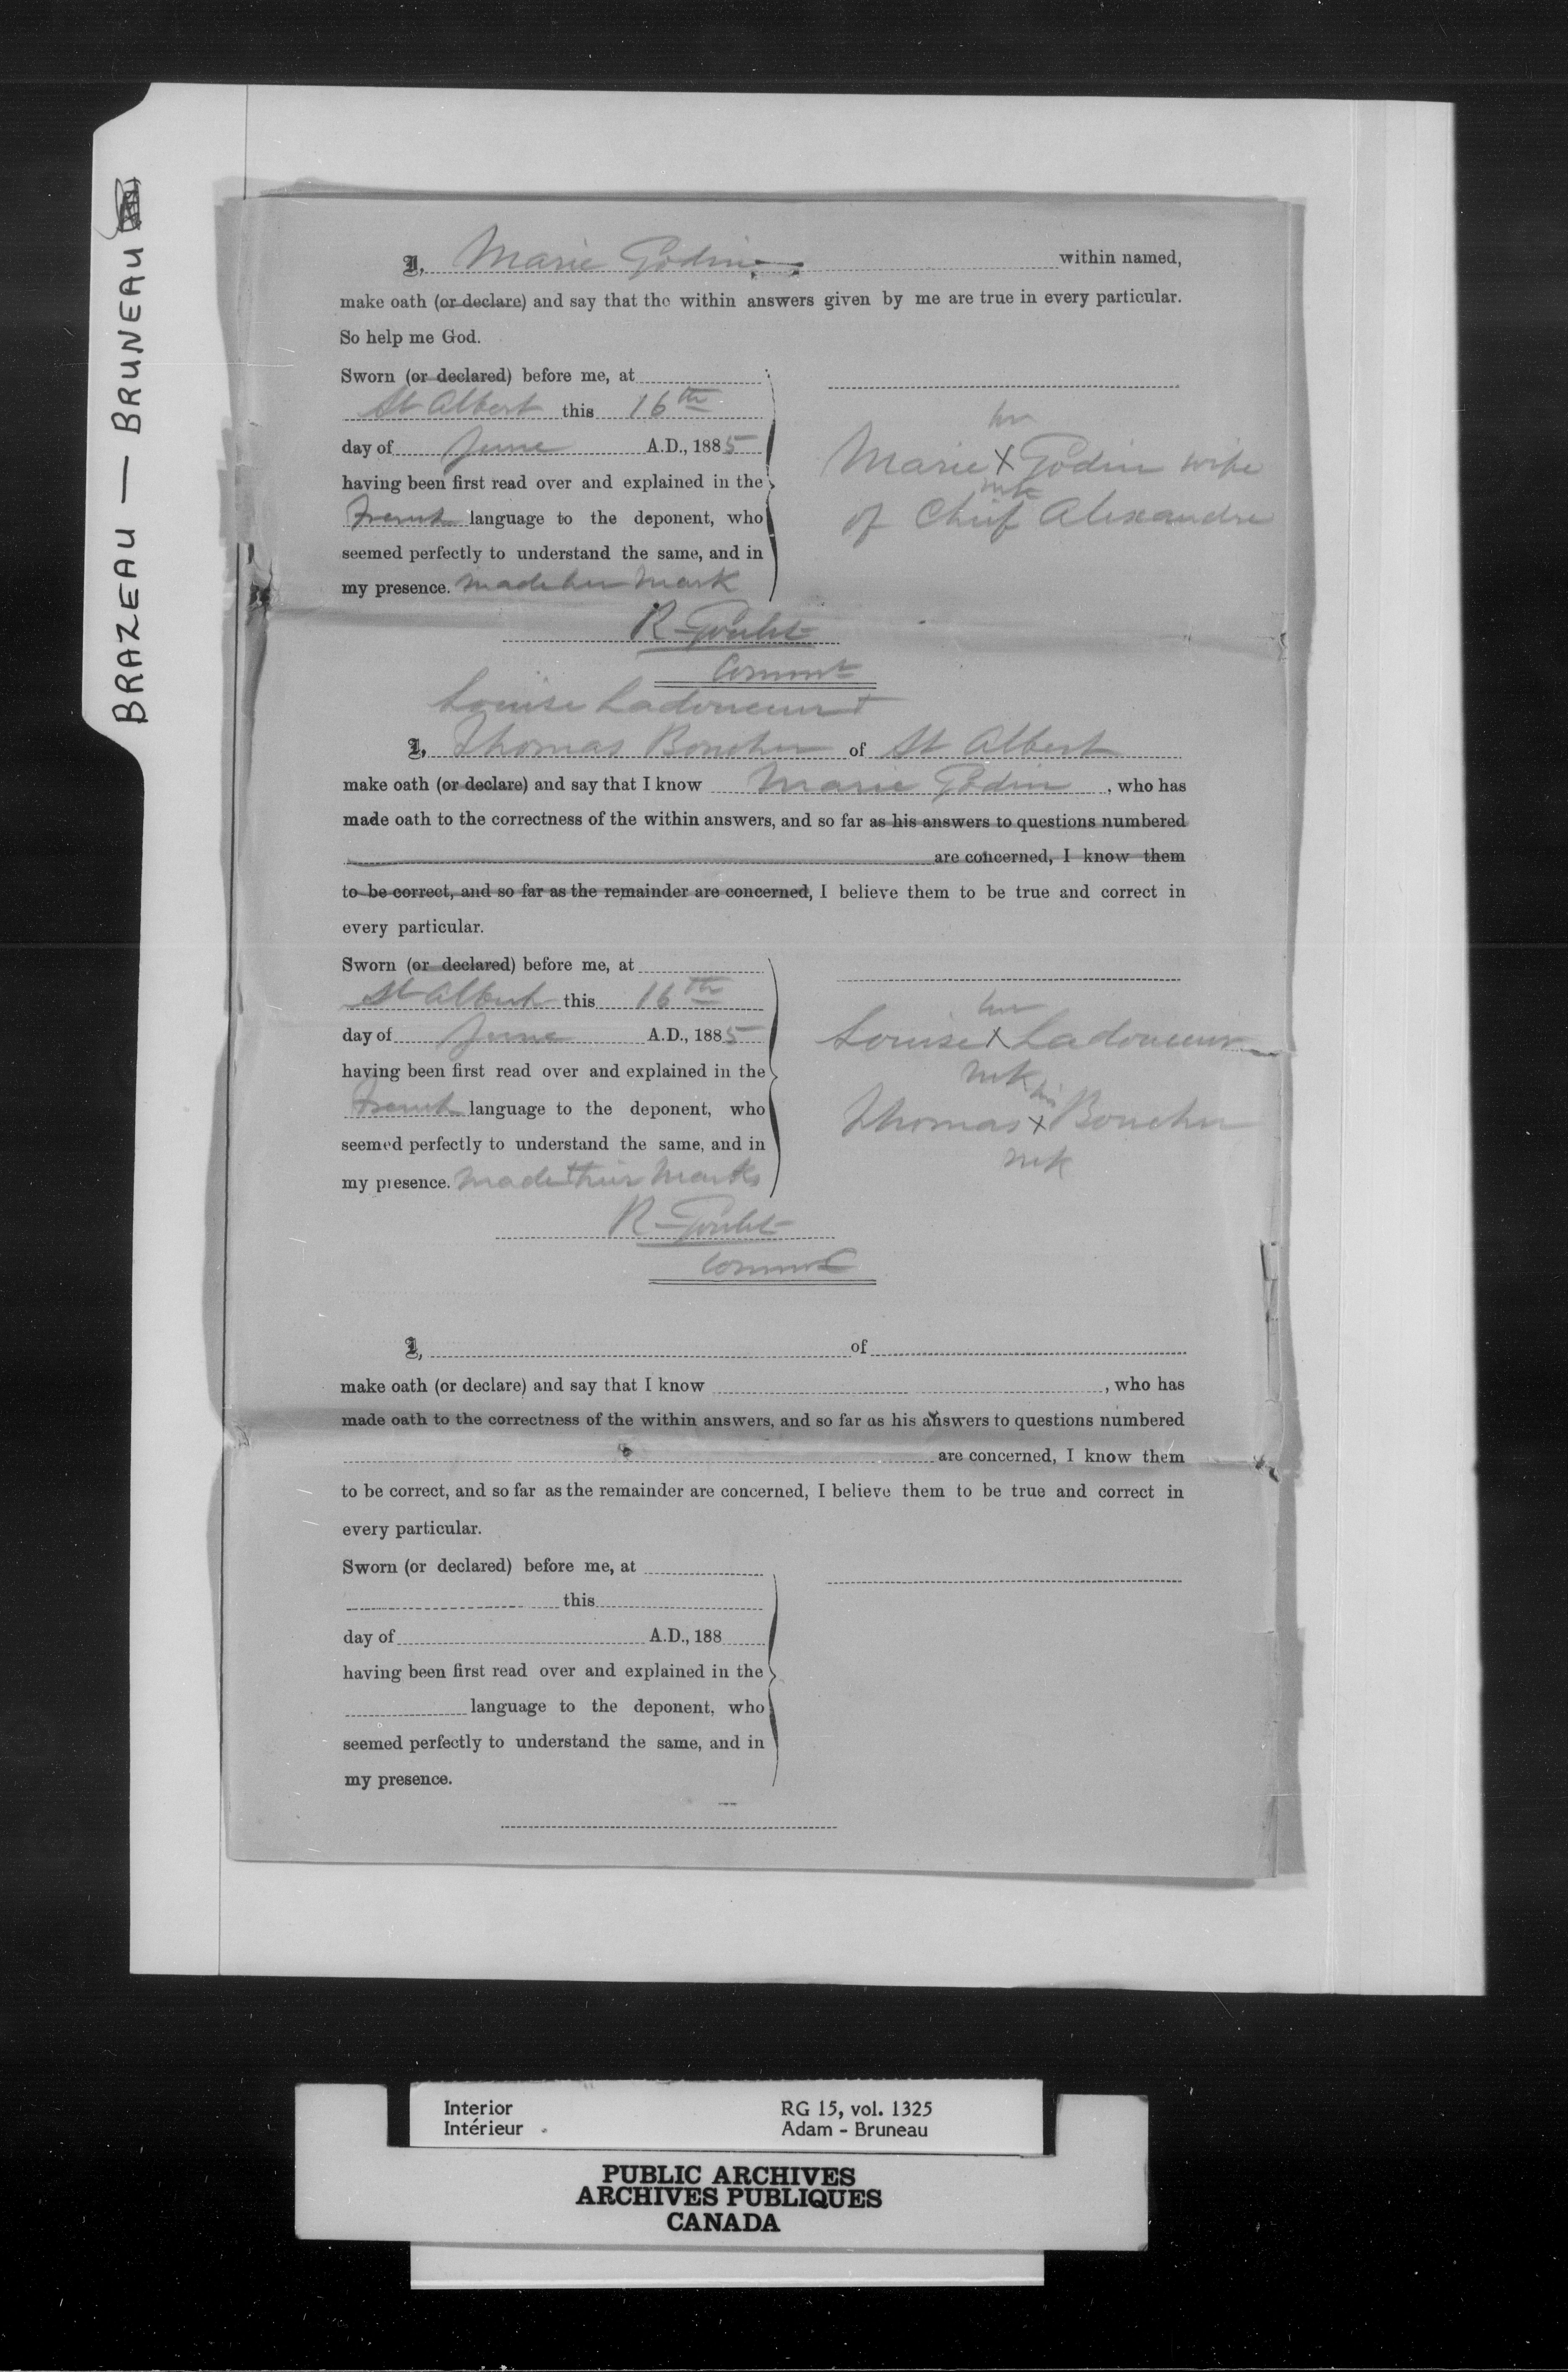 BRAZEAU — BRUNEAU
I, Marie Godin within named,
make oath (or declare) and say that the within answers given by me are true in every particular.
So help me God.
Sworn (or declared) before me, at
St Albert this 16th
day of June A.D., 1885
having been first read over and explained in the
French language to the deponent, who
seemed perfectly to understand the same, and in
my presence. made her mark
her
Marie X Godin wife
mk
of Chief Alexandre
R Goulet
Commr
Louise Ladouceur +
I, Thomas Boucher of St Albert
make oath (or declare) and say that I know Marie Godin, who has
made oath to the correctness of the within answers, and so far as his answers to questions numbered
are concerned, I know them
to be correct, and so far as the remainder are concerned, I believe them to be true and correct in
every particular.
Sworn (or declared) before me, at
St Albert this 16th
day of June A.D., 1885
having been first read over and explained in the
French language to the deponent, who
seemed perfectly to understand the same, and in
my presence. made their marks
her
Louise X Ladouceur
mk
his
Thomas X Boucher
mk
R Goulet
Commr
I, of
make oath (or declare) and say that I know , who has
made oath to the correctness of the within answers, and so far as his answers to questions numbered
are concerned, I know them
to be correct, and so far as the remainder are concerned, I believe them to be true and correct in
every particular.
Sworn (or declared) before me, at
this
day of A.D., 188
having been first read over and explained in the
language to the deponent, who
seemed perfectly to understand the same, and in
my presence.
Interior RG 15, vol. 1325
Intérieur Adam - Bruneau
PUBLIC ARCHIVES
ARCHIVES PUBLIQUES
CANADA